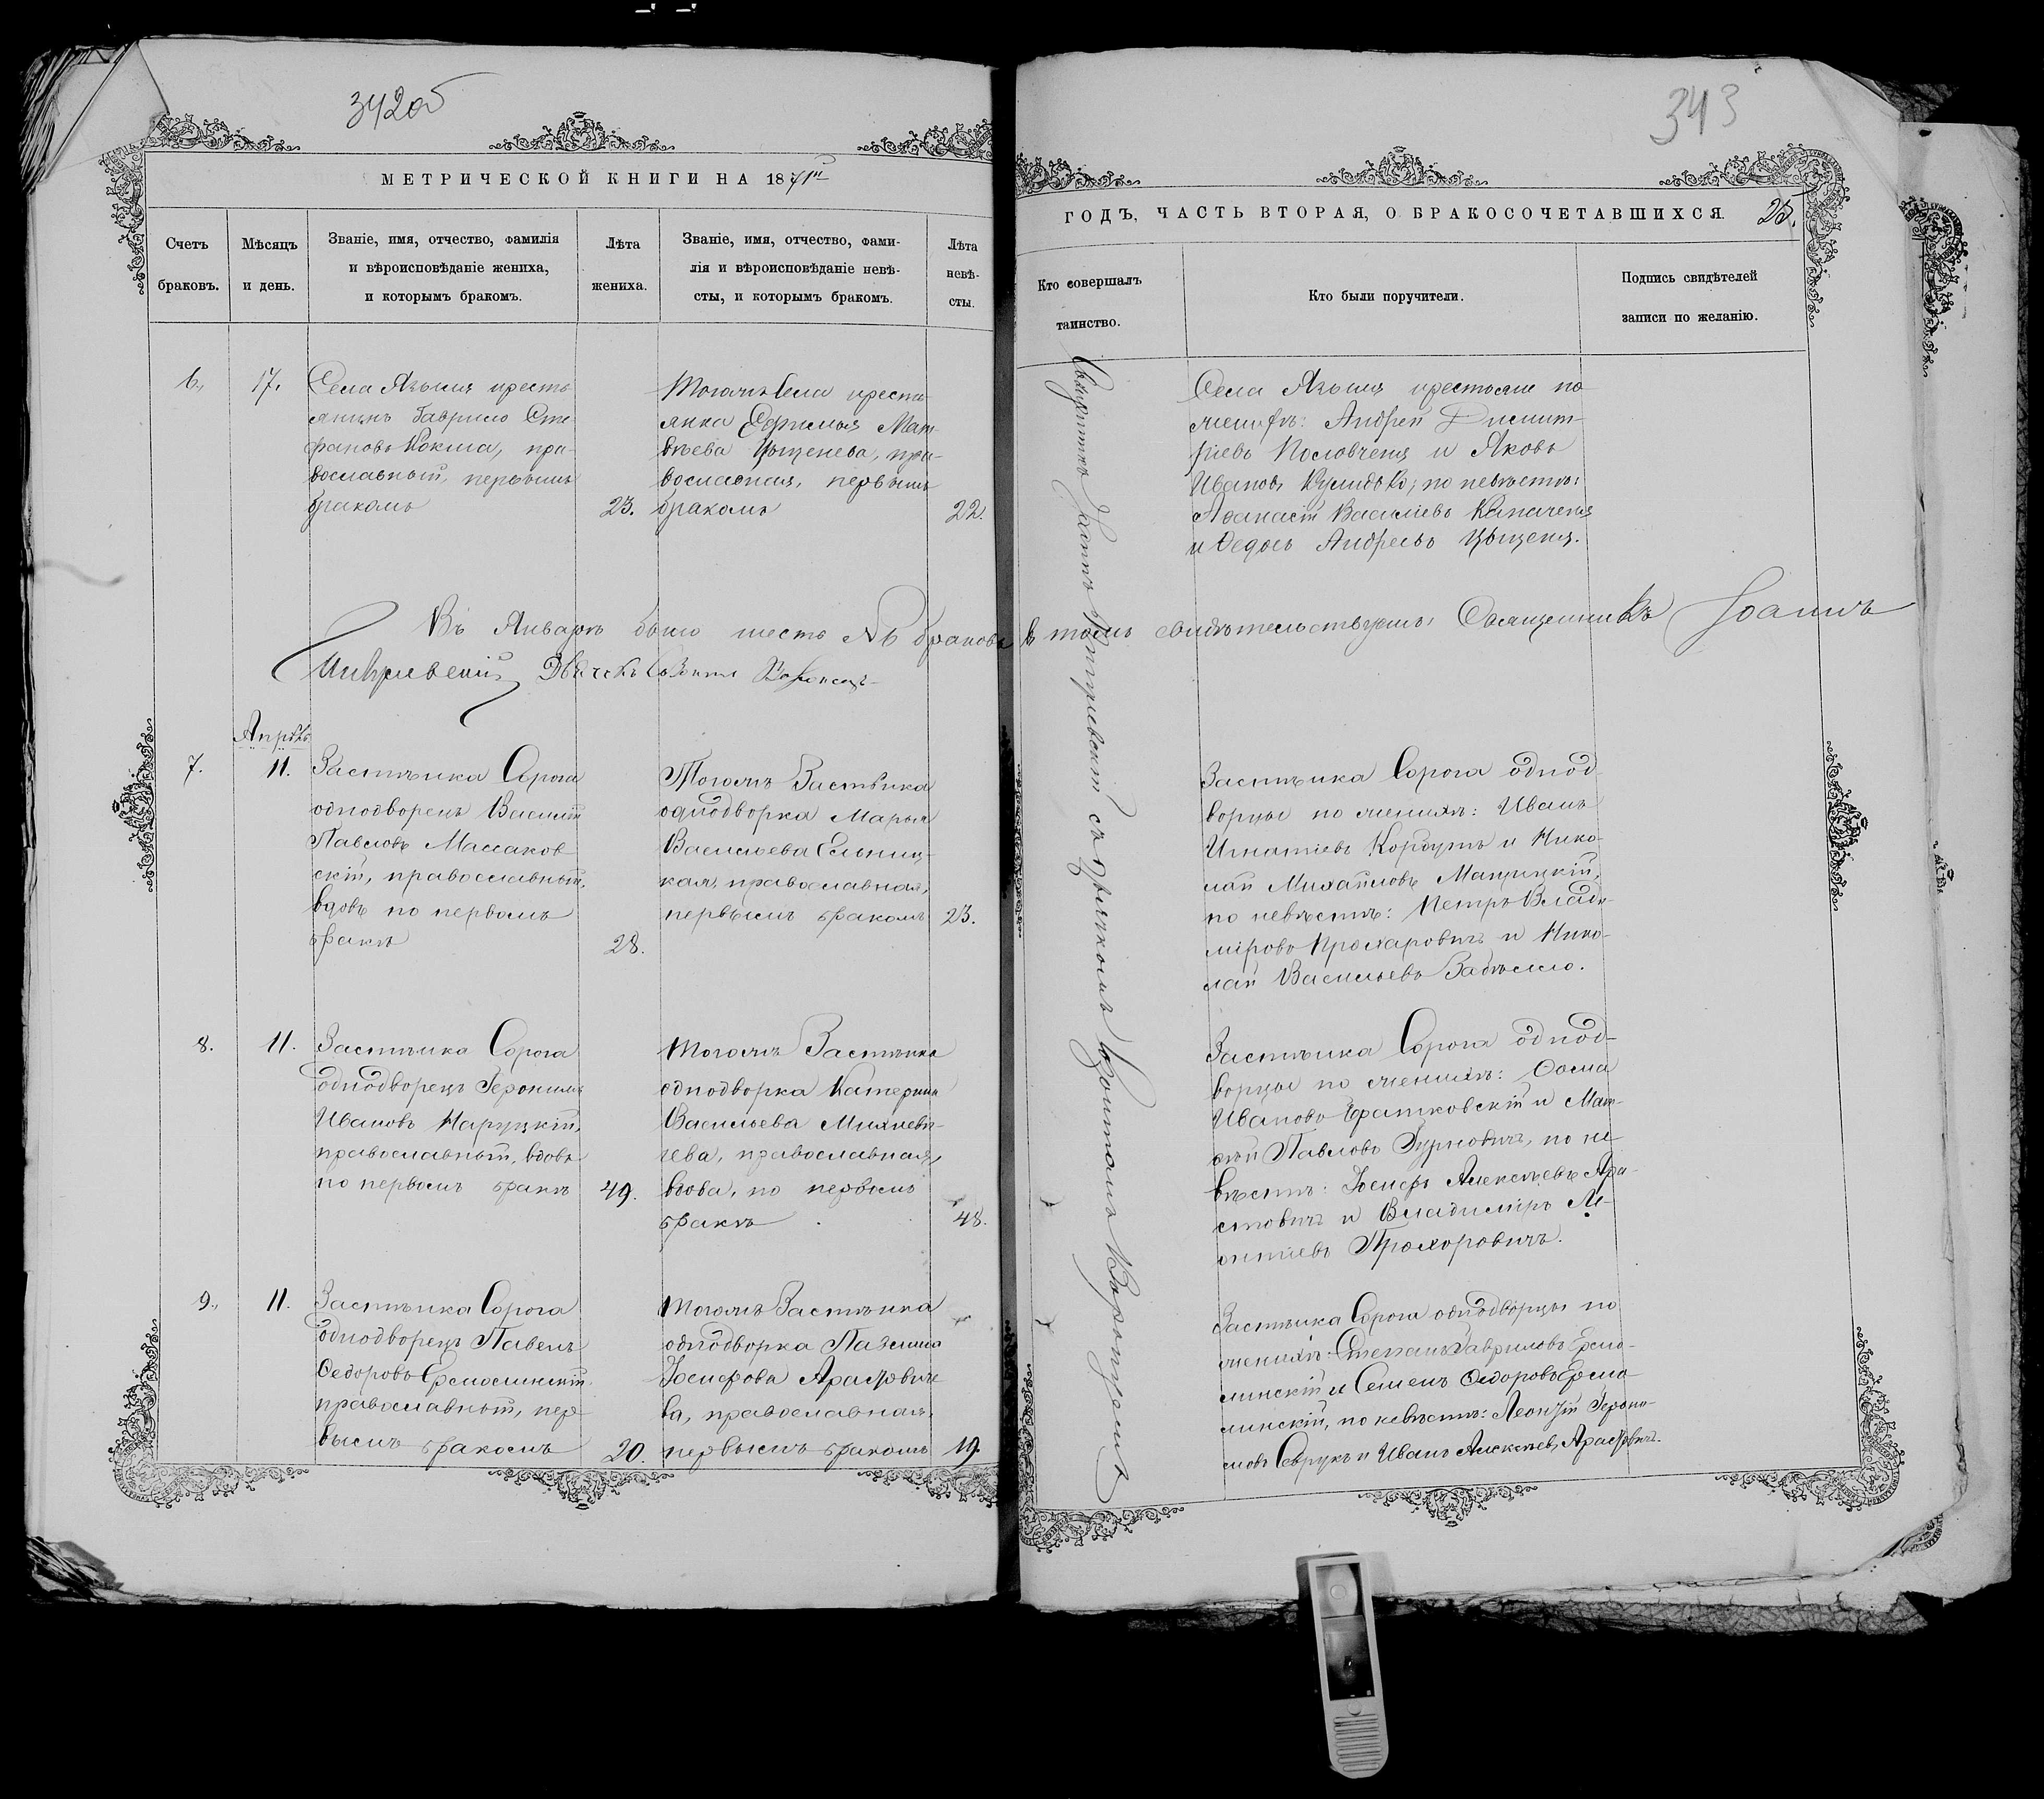 342об
МЕТРИЧЕСКОЙ КНИГИ НА 1871й
Счетъ браковъ.
Мѣсяцъ и день.
Званіе, имя, отчество, фамилія
и вѣроисповѣданіе жениха,
и которымъ бракомъ.
Лѣта жениха.
Званіе, имя, отчество, фами-
лія и вѣроисповѣданіе невѣ-
сты, и которымъ бракомъ.
Лѣта невѣ-
сты.
6.
17.
Села Язвиня кресть
янинъ Гаврило Сте
фановъ Кокша, пра-
вославный, первымъ
бракомъ
23.
Тогожъ Села кресть
янка Ефимья Мат-
вѣева Цыценева, пра-
вославная, первымъ
бракомъ
22.
Въ Январѣ было шесть №6 браковъ
Апрѣль
7.
11.
Застѣнка Сорога
однодворецъ Василій
Павловъ Массаков
скій, православный,
вдовъ по первомъ
бракѣ
28.
Тогожъ Застѣнка
однодворка Марья
Васильева Ельниц-
кая, православная,
первымъ бракомъ
23.
8.
11.
Застѣнка Сорога
однодворецъ Іеронимъ
Ивановъ Наруцкій,
православный, вдовъ
по первомъ бракѣ
49.
Тогожъ Застѣнка
однодворка Катерина
Васильева Михневи-
чева, православная,
вдова, по первымъ
бракѣ
48.
9.
11.
Застѣнка Сорога
однодворецъ Павелъ
Федоровъ Ермолинскій
православный, пер
вымъ бракомъ
20.
Тогожъ Застѣнка
однодворка
Іосифова Арастовиче
ва, православная,
первымъ бракомъ
19.
343
ГОДЪ, ЧАСТЬ ВТОРАЯ, О БРАКОСОЧЕТАВШИХСЯ.
25.
Кто совершалъ
таинство.
Кто были поручители.
Подпись свидѣтелей
записи по желанію.
Села Язвиня крестьяне по
женихѣ: Андрей Димит-
ріевъ Пословченя и Яковъ
Ивановъ; по невѣстѣ:
Афанасій Василіевъ Капаченя
и Федосъ Андреевъ Цыценя.
въ томъ свидѣтельствуемъ: Священникъ Іоаннъ
Застѣнка Сорога однод-
ворцы по женихѣ: Иванъ
Игнатіевъ Корбутъ и Нико-
лай Михайловъ Мацуцкій,
по невѣстѣ: Петръ Влади-
міровъ Прохаровичъ и Нико-
лай Васильевъ Забѣлло.
Застѣнка Сорога однод-
ворцы по женихѣ: Фома
Ивановъ Братковскій и Мат-
фей Павловъ Гурновичъ, по не
вѣстѣ: Іосифъ Алексѣевъ Ара-
стовичъ и Владиміръ Ле-
онтіевъ Прохоровичъ.
Застѣнка Сорога однодворцы по
женихѣ: Степанъ Гавриловъ Ермо-
линскій и Семенъ Федоровъ Ермо-
линскій, по невѣстѣ: Леонтій Іерони-
мовъ Севрукъ и Иванъ Алексѣевъ Арастовичъ.